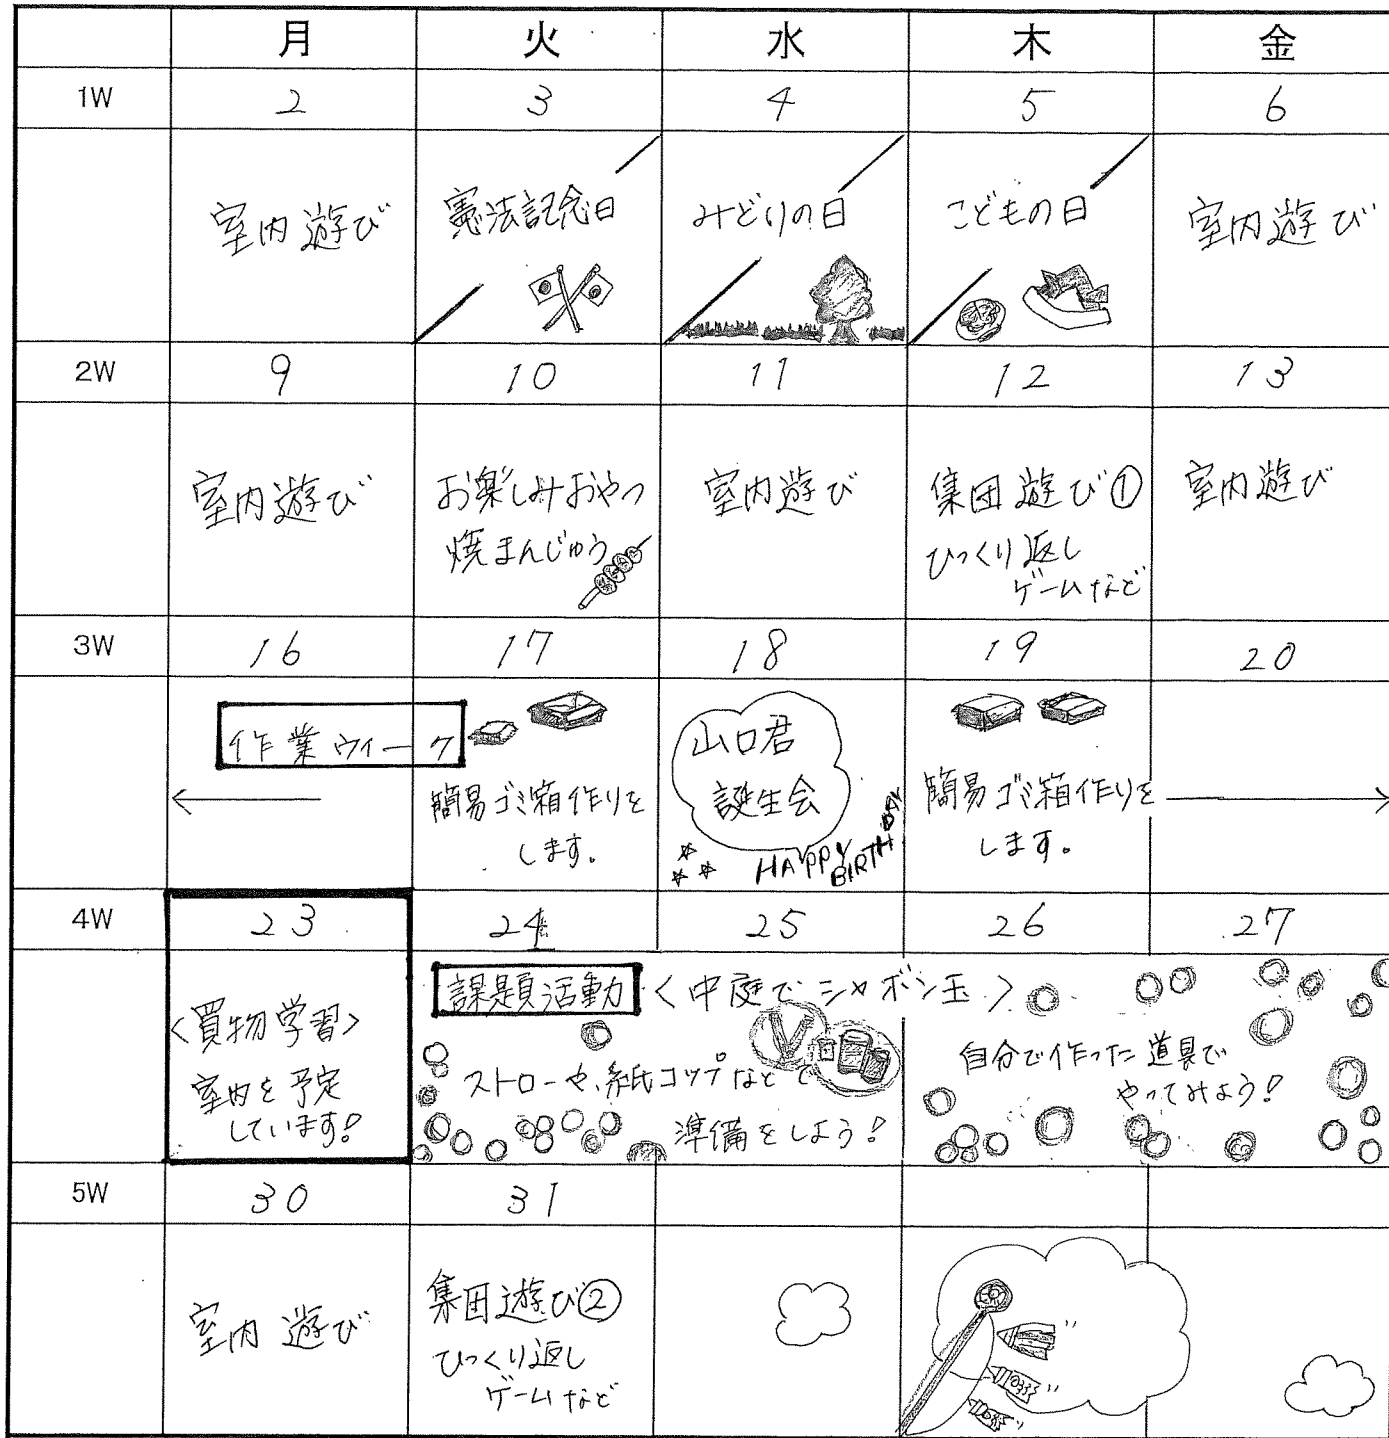 月 火 水 木 金
1W 2 3 4 5 6
室内遊び
憲法記念日
みどりの日
こどもの日
室内遊び
2W 9 10 11 12 13
室内遊び
お楽しみおやつ
焼まんじゅう
室内遊び
集団遊び①
ひっくり返し
ゲームなど
室内遊び
3W 16 17 18 19 20
作業ウィーク
簡易ゴミ箱作りを
します。
山口君
誕生会
HAPPY
BIRTHDAY
簡易ゴミ箱作りを
します。
4W 23 24 25 26 27
<買物学習>
室内を予定
しています!
課題活動 <中庭でシャボン玉>
ストローや、紙コップなどで
準備をしよう!
自分で作った道具で
やってみよう!
5W 30 31
室内遊び
集団遊び②
ひっくり返し
ゲームなど